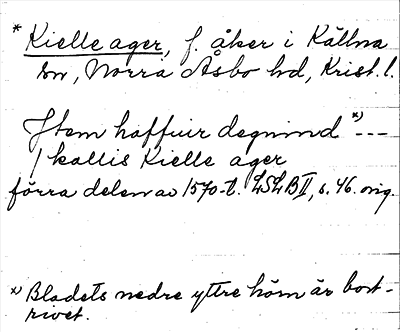 * Kielle ager, f. åker i Källna
sn, Norra Åsbo hd, Krist. l.
Jtem haffuir degnind *) ---
/ kallis Kielle ager
förra delen av 1570-t. LSLB II, s. 46. orig.
*) Bladets nedre yttre hörn är bort-
rivet.